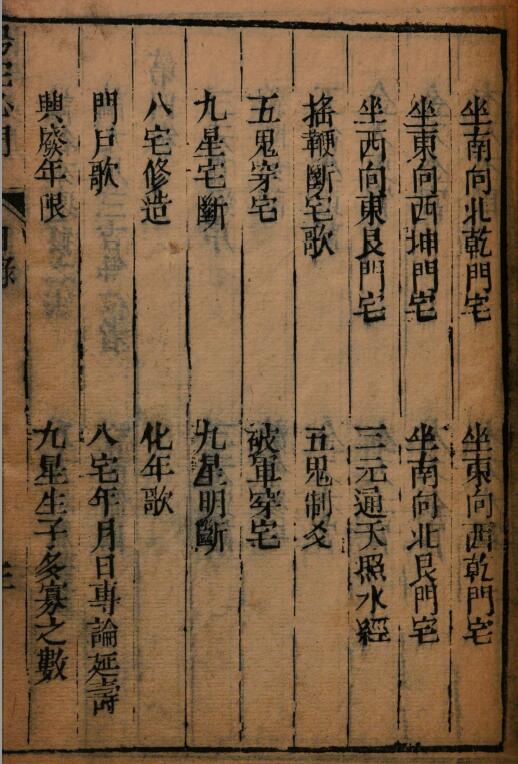 坐南向北乾門宅 坐東向西乾門宅
坐東向西坤門宅 坐南向北艮門宅
坐西向東艮門宅 三元通天照水經
搖鞭斷宅歌 五鬼制爻
五鬼穿宅 破軍穿宅
九星宅斷 九星明斷
八宅修造 化年歌
門戶歌 八宅年月日專論延壽
興廢年限 九星生子多寡之數
目錄